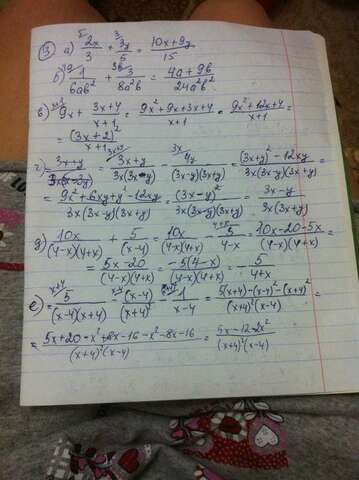 ③ а) ⁵ 2x/3 + ³ 3y/5 = (10x+9y)/15
б) ⁴ᵃ 1/6ab² + ³ᵇ 3/8a²b = (4a+9b)/24a²b²
в) ˣ⁺¹ 9x + (3x+4)/(x+1) = (9x²+9x+3x+4)/(x+1) = (9x²+12x+4)/(x+1) =
= (3x+2)²/(x+1)
г) = (3x+y)/(3x(3x-y)) - 4y/((3x-y)(3x+y)) = ((3x+y)²-12xy)/(3x(3x-y)(3x+y)) =
= (9x²+6xy+y²-12xy)/(3x(3x-y)(3x+y)) = (3x-y)²/(3x(3x-y)(3x+y)) = (3x-y)/(3x(3x+y))
д) 10x/((4-x)(4+x)) + 5/(x-4) = 10x/((4-x)(4+x)) - ⁴⁺ˣ 5/(4-x) = (10x-20-5x)/((4-x)(4+x)) =
= (5x-20)/((4-x)(4+x)) = -5(4-x)/((4-x)(4+x)) = - 5/(4+x)
е) = ˣ⁺⁴ 5/((x-4)(x+4)) - ˣ⁻⁴ (x-4)/(x+4)² - 1/(x-4) = (5(x+4)-(x-4)²-(x+4)²)/((x+4)²(x-4)) =
= (5x+20-x²+8x-16-x²-8x-16)/((x+4)²(x-4)) = (5x-12-2x²)/((x+4)²(x-4))